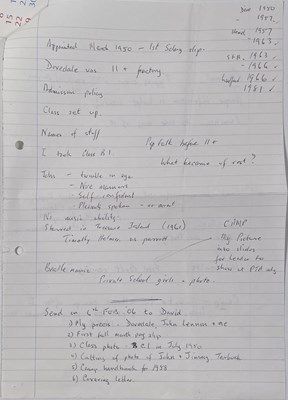 1950
1957
1963
1966
1966 ✓
1981 ✓
Appointed March 1950 – 1st Salary slip.
Dovedale was 11+
Admission policy
Class set up.
Names of staff
Pep talk before 11+
I took Class B1
What became of rest?
John – twinkle in eye
– Nice
– Self confident
– Pleasantly spoken – no accent
No music ability
Starred in Treasure Island (1951)
CAMP
Timothy Holmes as parrot
My Picture
was slides
for Leader to
show at PTA mtg
Beatle music
Private School girls + photo.
Send on 6th FEB 06 to David.
1) My picture – Dovedale, John Lennon + me
2) First full month pay slip
3) Class photo B1 in July 1950
4) Cutting of photo of John + Jimmy Tarbuck
5) Camp handbook for 1958
6) Covering letter.